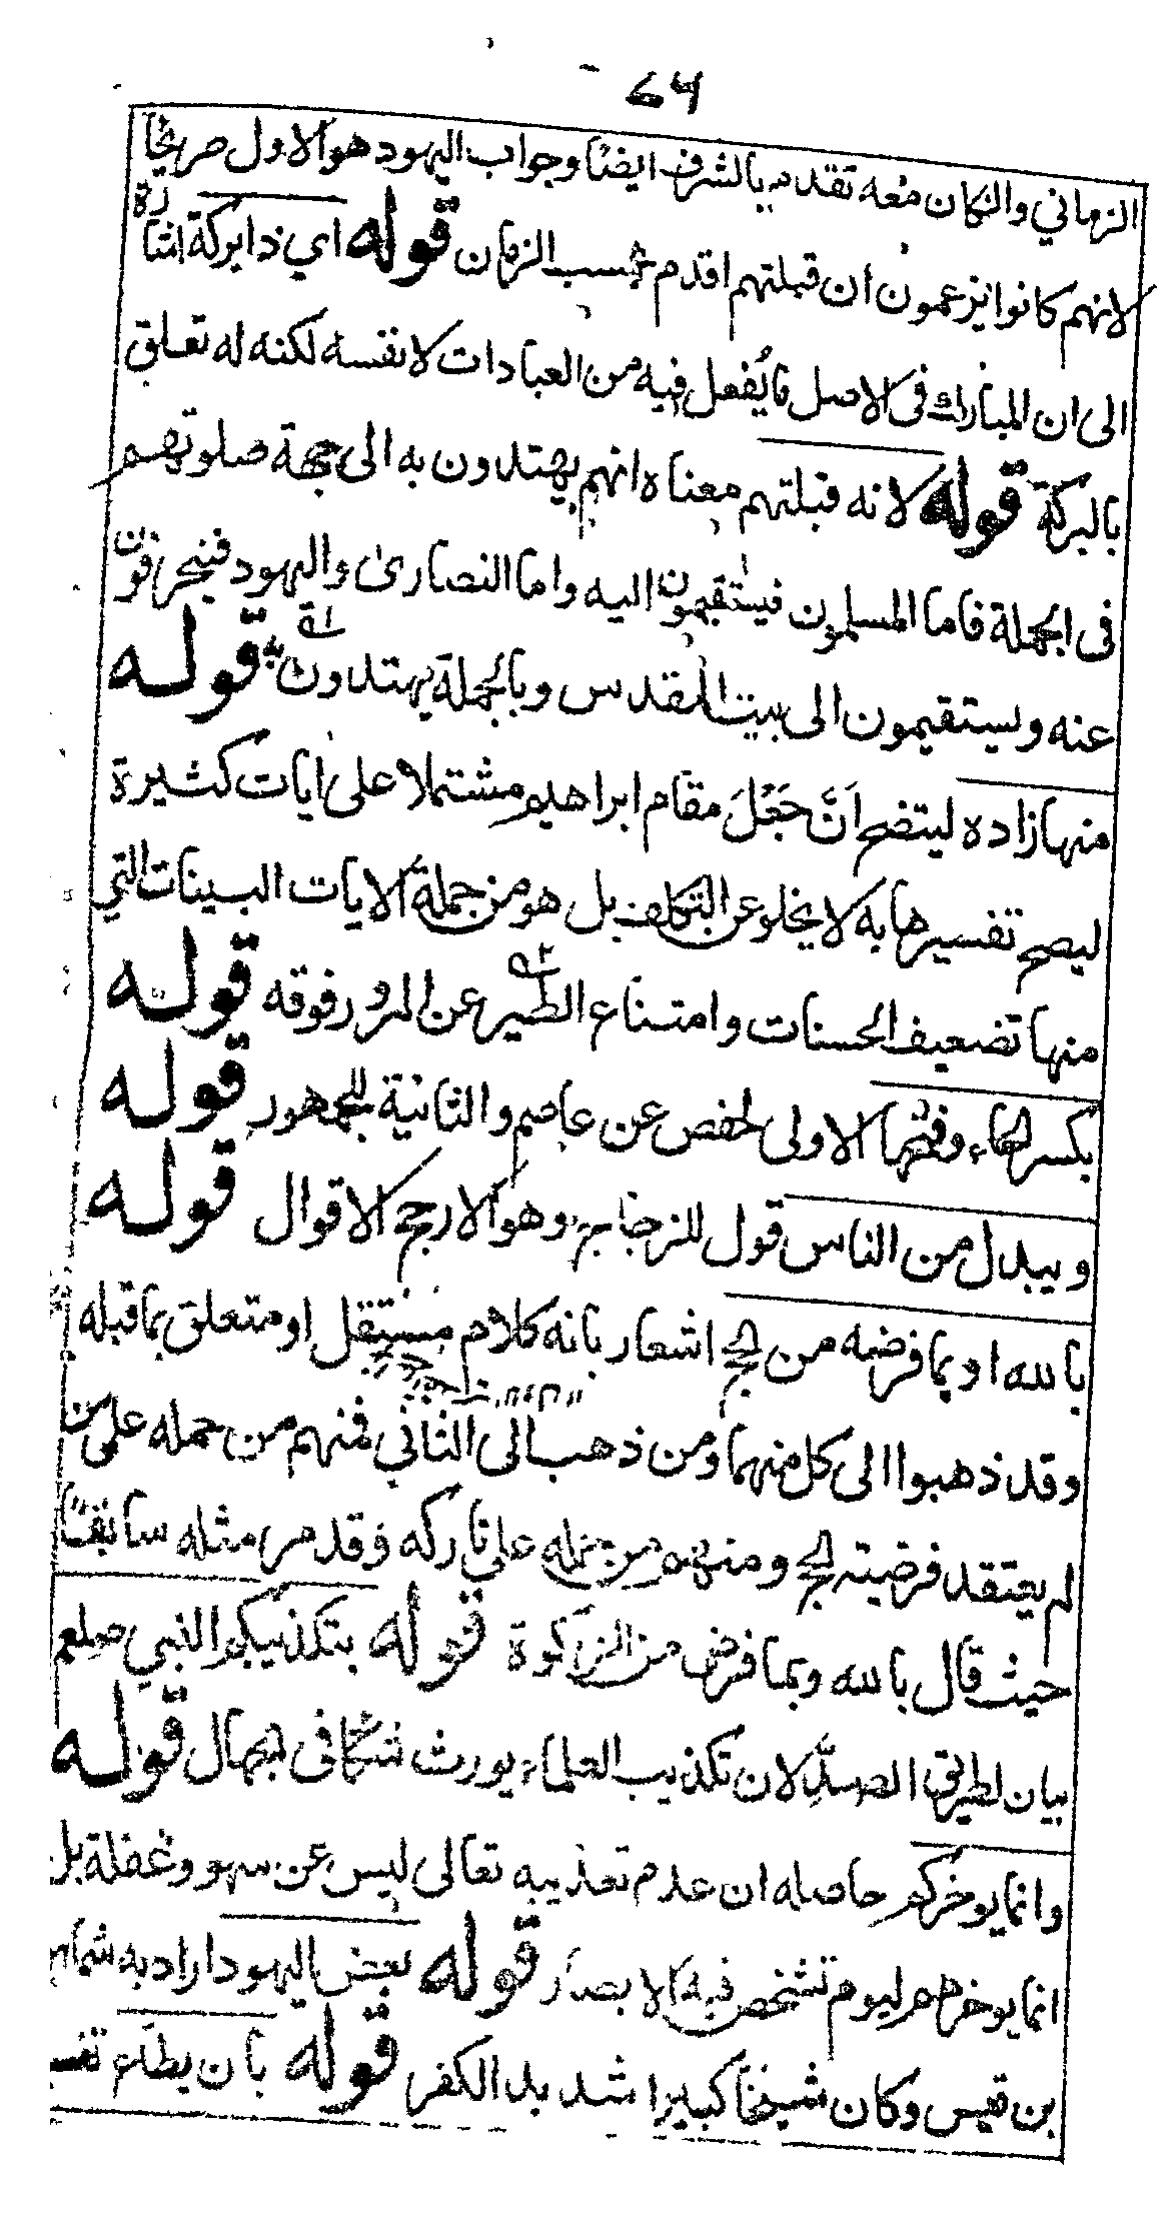 64
الزماني وان كان معه تقدم بالشرف ايضا وجواب اليهود هو الاول صريحا
لانهم كانوا يزعمون ان قبلتهم اقدم بحسب الزمان قوله اي ذا بركة اشارة
الى ان المبارك فى الاصل ما يُفعل فيه من العبادات لا نفسه لكنه له تعلق
بالبركة قوله لانه قبلتهم معناه انهم يهتدون به الى جهة صلوتهم
فى الجملة فاما المسلمون فيستقيمون اليه واما النصارى واليهود فينحرفون
عنه ويستقيمون الى بيت المقدس وبالجملة يهتدون به قوله
منها زاده ليتضح اَنَّ جَعْلَ مقام ابراهيم مشتملا على ايات كثيرة
ليصح تفسيرها به لا يخلو عن التكلف بل هو من جملة الايات البينات التي
منها تضعيف الحسنات وامتناع الطير عن المرور فوقه قوله
بكسر الحاء وفتحها الاولى لحفص عن عاصم والثانية للجمهور قوله
ويبدل من الناس قول للزجاج وهو الارجح الاقوال قوله
بالله او بما فرضه من الحج اشعار بانه كلام مستقل او متعلق بما قبله
وقد ذهبوا الى كل منهما ومن ذهب الى الثاني فمنهم من حمله على من
لم يعتقد فرضيته الحج ومنهم من حمله على تاركه وقد مر مثله سابقا
حيث قال بالله وبما فرض من الزكوة قوله بتكذيبكم النبي صلعم
بيان لطريق الصد لان تكذيب العلماء يورث شكا فى الجهال قوله
وانما يوخركم حاصله ان عدم تعذيبه تعالى ليس عن سهو وغفلة بل
انما يوخرهم ليوم تشخص فيه الابصار قوله بعض اليهود اراد به شماس
بن قيس وكان شيخا كبيرا شديد الكفر قوله بان يطاع